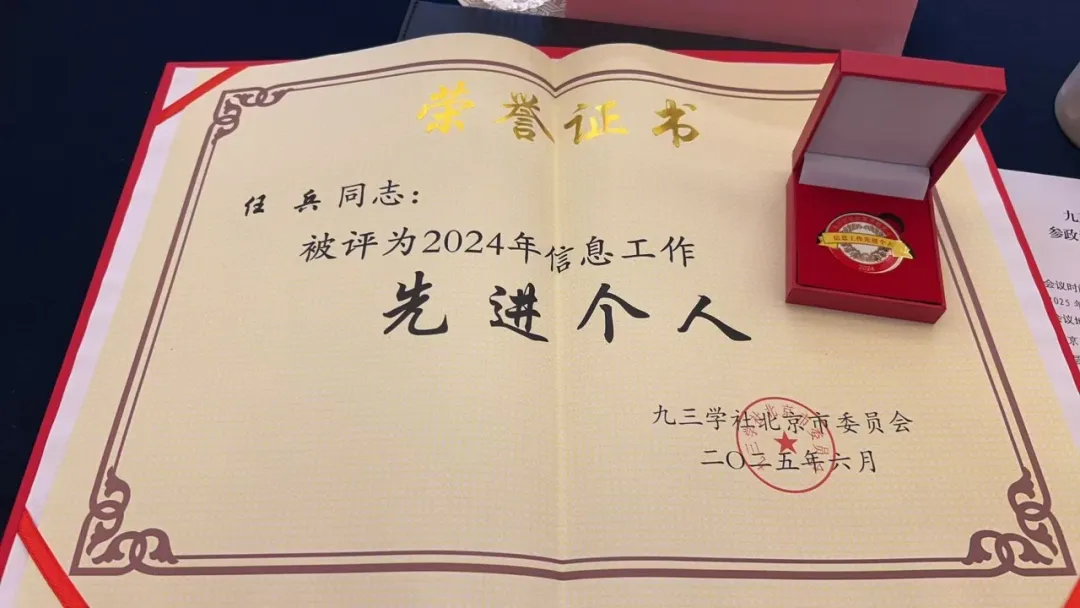 荣誉证书
任 兵 同志：
被评为2024年信息工作
先进个人
九三学社北京市委员会
二〇二五年六月
信息工作先进个人
2024
九
参政
会议时间
2025年
会议地
京